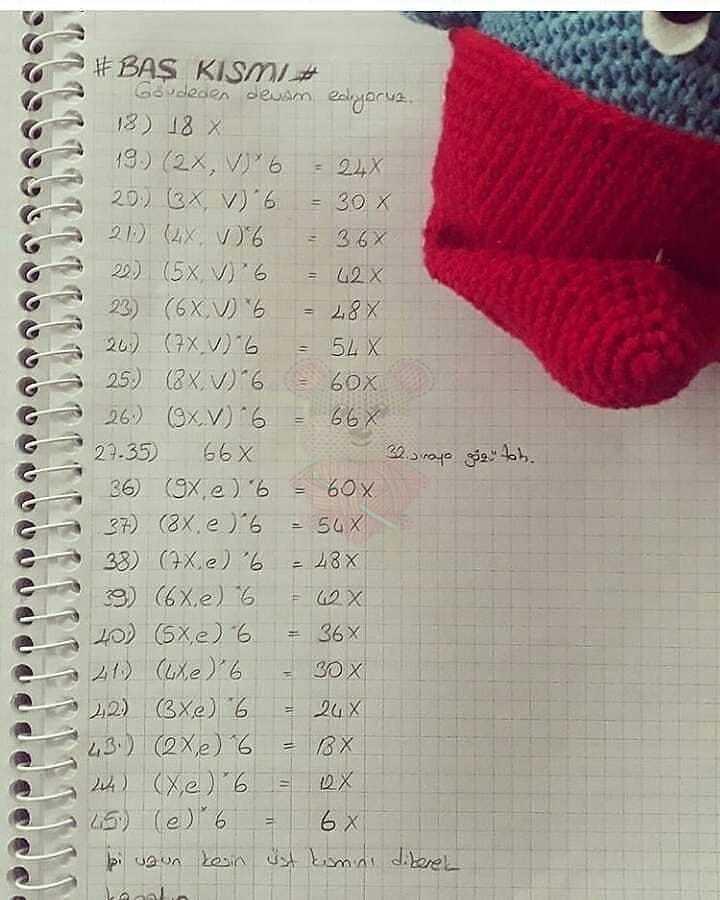 # BAŞ KISMI #
Gövdeden devam ediyoruz.
18) 18 X
19.) (2X, V)*6 = 24X
20.) (3X, V)*6 = 30 X
21.) (4X, V)*6 = 36X
22.) (5X, V)*6 = 42X
23.) (6X,V)*6 = 48X
24.) (7X,V)*6 = 54 X
25.) (8X,V)*6 = 60X
26.) (9X,V)*6 = 66X
27-35) 66X 32.sıraya göz tak.
36) (9X,e)*6 = 60X
37) (8X,e)*6 = 54X
38) (7X,e)*6 = 48X
39) (6X,e)*6 = 42X
40) (5X,e)*6 = 36X
41.) (4X,e)*6 = 30X
42.) (3X,e)*6 = 24X
43.) (2X,e)*6 = 18X
44) (X,e)*6 = 12X
45.) (e)*6 = 6X
ipi uzun kesin üst kısmını dikerek
kapatın